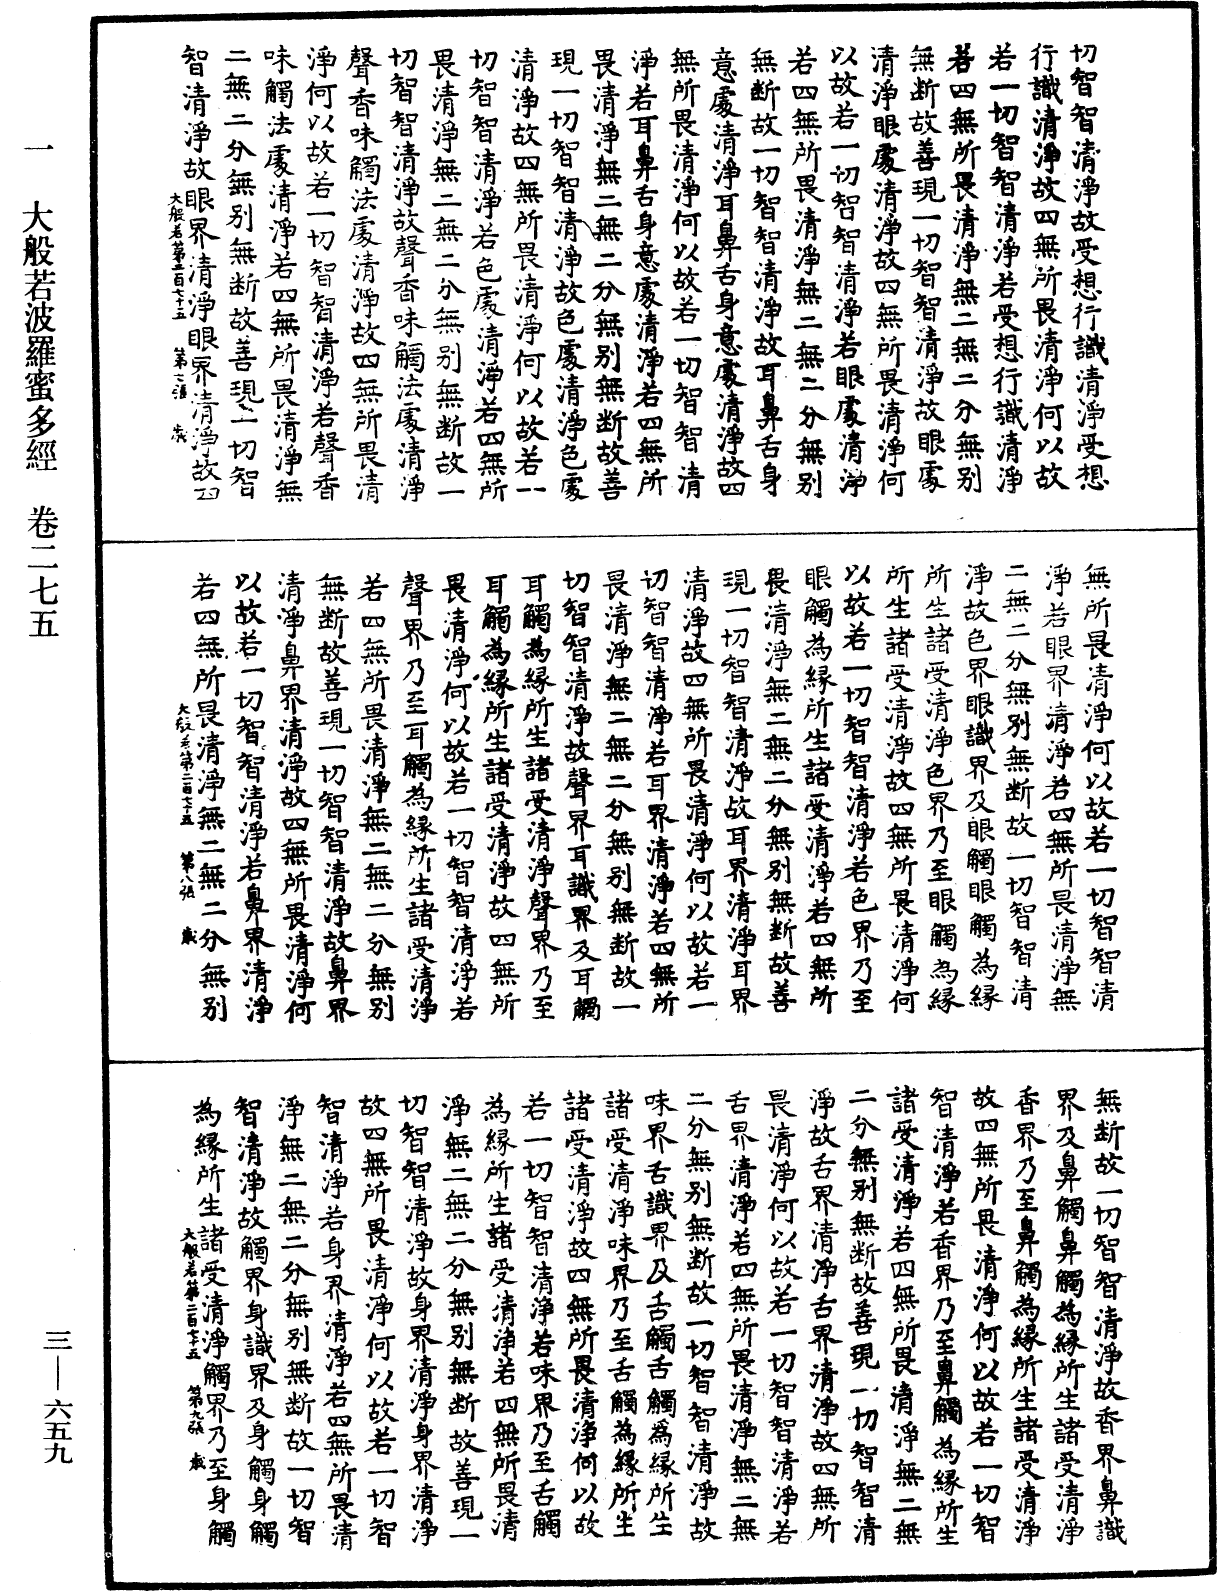 切智智清淨故受想行識清淨受想
行識清淨故四無所畏清淨何以故
若一切智智清淨若受想行識清淨
若四無所畏清淨無二無二分無別
無斷故善現一切智智清淨故眼處
清淨眼處清淨故四無所畏清淨何
以故若一切智智清淨若眼處清淨
若四無所畏清淨無二無二分無別
無斷故一切智智清淨故耳鼻舌身
意處清淨耳鼻舌身意處清淨故四
無所畏清淨何以故若一切智智清
淨若耳鼻舌身意處清淨若四無所
畏清淨無二無二分無別無斷故善
現一切智智清淨故色處清淨色處
清淨故四無所畏清淨何以故若一
切智智清淨若色處清淨若四無所
畏清淨無二無二分無別無斷故一
切智智清淨故聲香味觸法處清淨
聲香味觸法處清淨故四無所畏清
淨何以故若一切智智清淨若聲香
味觸法處清淨若四無所畏清淨無
二無二分無別無斷故善現一切智
智清淨故眼界清淨眼界清淨故四
大般若第二百七十五 第七張 歲
無所畏清淨何以故若一切智智清
淨若眼界清淨若四無所畏清淨無
二無二分無別無斷故一切智智清
淨故色界眼識界及眼觸眼觸為緣
所生諸受清淨色界乃至眼觸為緣
所生諸受清淨故四無所畏清淨何
以故若一切智智清淨若色界乃至
眼觸為緣所生諸受清淨若四無所
畏清淨無二無二分無別無斷故善
現一切智智清淨故耳界清淨耳界
清淨故四無所畏清淨何以故若一
切智智清淨若耳界清淨若四無所
畏清淨無二無二分無別無斷故一
切智智清淨故聲界耳識界及耳觸
耳觸為緣所生諸受清淨聲界乃至
耳觸為緣所生諸受清淨故四無所
畏清淨何以故若一切智智清淨若
聲界乃至耳觸為緣所生諸受清淨
若四無所畏清淨無二無二分無別
無斷故善現一切智智清淨故鼻界
清淨鼻界清淨故四無所畏清淨何
以故若一切智智清淨若鼻界清淨
若四無所畏清淨無二無二分無別
大般若第二百七十五 第八張 歲
無斷故一切智智清淨故香界鼻識
界及鼻觸鼻觸為緣所生諸受清淨
香界乃至鼻觸為緣所生諸受清淨
故四無所畏清淨何以故若一切智
智清淨若香界乃至鼻觸為緣所生
諸受清淨若四無所畏清淨無二無
二分無別無斷故善現一切智智清
淨故舌界清淨舌界清淨故四無所
畏清淨何以故若一切智智清淨若
舌界清淨若四無所畏清淨無二無
二分無別無斷故一切智智清淨故
味界舌識界及舌觸舌觸為緣所生
諸受清淨味界乃至舌觸為緣所生
諸受清淨故四無所畏清淨何以故
若一切智智清淨若味界乃至舌觸
為緣所生諸受清淨若四無所畏清
淨無二無二分無別無斷故善現一
切智智清淨故身界清淨身界清淨
故四無所畏清淨何以故若一切智
智清淨若身界清淨若四無所畏清
淨無二無二分無別無斷故一切智
智清淨故觸界身識界及身觸身觸
為緣所生諸受清淨觸界乃至身觸
大般若第二百七十五 第九張 歲
一 大般若波羅蜜多經 卷二七五
三—六五九